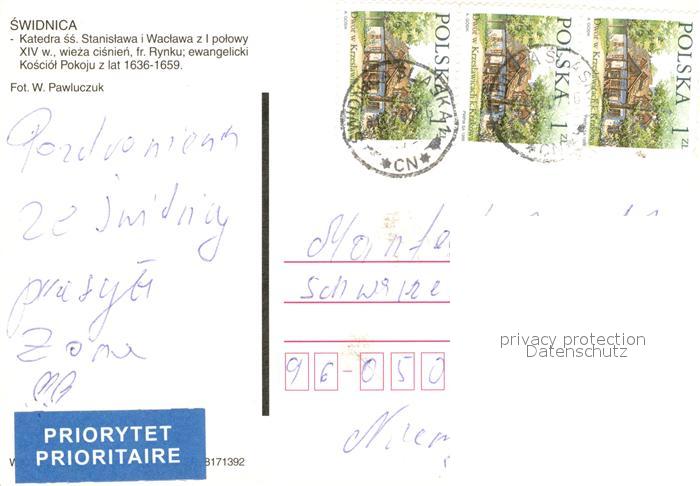 ŚWIDNICA
- Katedra śś. Stanisława i Wacława z I połowy
XIV w., wieża ciśnień, fr. Rynku; ewangelicki
Kościół Pokoju z lat 1636-1659.
Fot. W. Pawluczuk
Pozdrowienia
ze Świdnicy
przesyła
Żona
PRIORYTET
PRIORITAIRE
8171392
POLSKA 1 ZŁ
Dwór w Krzesławicach k. Krakowa
POLSKA 1 ZŁ
Dwór w Krzesławicach k. Krakowa
POLSKA 1 ZŁ
Dwór w Krzesławicach k. Krakowa
CN
CN
Schwarze
96-050
privacy protection
Datenschutz